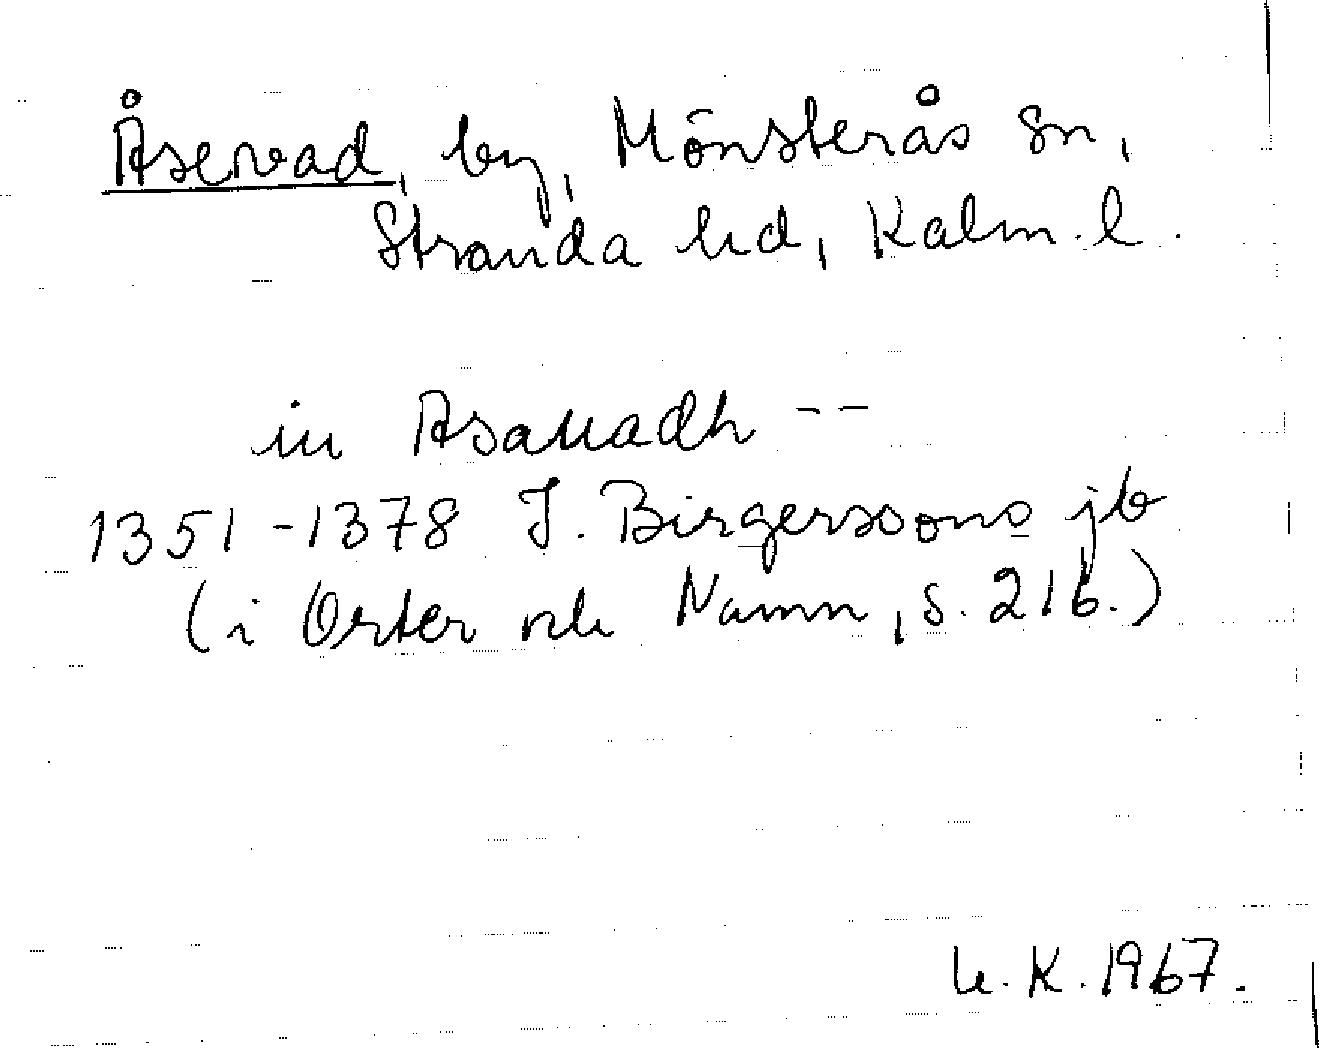 Åsevad, by, Mönsterås sn,
Stranda hd, Kalm. l.
in Asauadh --
1351-1378 J. Birgerssons jb
(i Orter och Namn, s. 216.)
K. 1967.